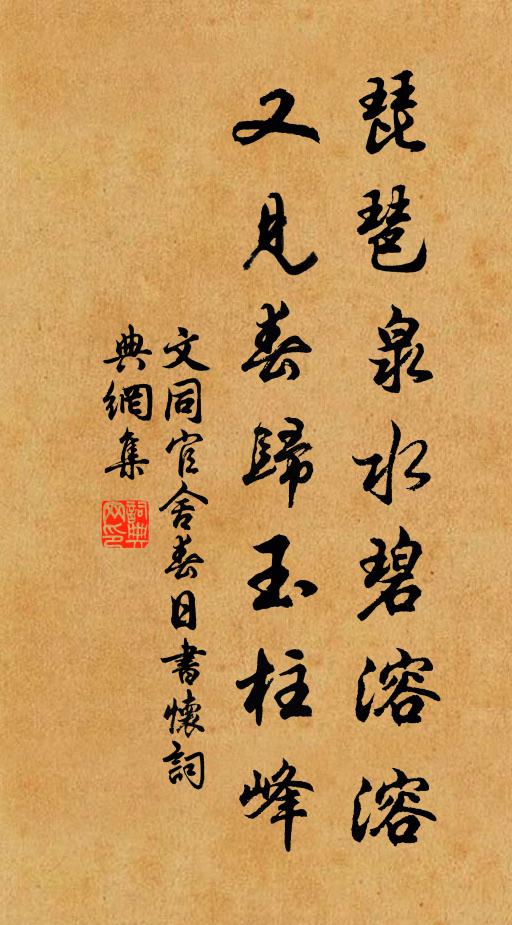 琵琶泉水碧溶溶
又見春歸玉柱峰
文同官舍春日書懷詞
典網集
詞典网印